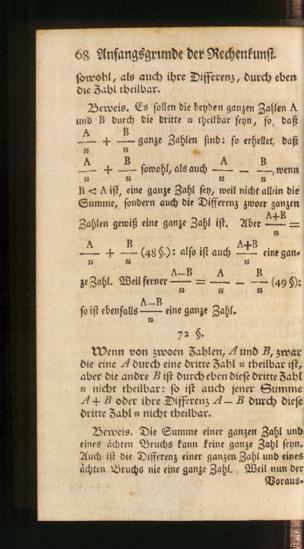 68 Anfangsgrunde der Rechenkunst.
sowohl, als auch ihre Differenz, durch eben
die Zahl theilbar.
Beweis. Es sollen die beyden ganzen Zahlen A
und B durch die dritte n theilbar seyn, so, daß
A/n + B/n ganze Zahlen sind: so erhellet, daß
A/n + B/n sowohl, als auch A/n − B/n, wenn
B < A ist, eine ganze Zahl sey, weil nicht allein die
Summe, sondern auch die Differenz zwoer ganzen
Zahlen gewiß eine ganze Zahl ist. Aber A+B/n =
A/n + B/n (48 §.): also ist auch A+B/n eine gan-
ze Zahl. Weil ferner A−B/n = A/n − B/n (49 §):
so ist ebenfalls A−B/n eine ganze Zahl.
72 §.
Wenn von zwoen Zahlen, A und B, zwar
die eine A durch eine dritte Zahl n theilbar ist,
aber die andre B ist durch eben diese dritte Zahl
n nicht theilbar: so ist auch jener Summe
A + B oder ihre Differenz A − B durch diese
dritte Zahl n nicht theilbar.
Beweis. Die Summe einer ganzen Zahl und
eines ächten Bruchs kann keine ganze Zahl seyn.
Auch ist die Differenz einer ganzen Zahl und eines
ächten Bruchs nie eine ganze Zahl. Weil nun der
Voraus-